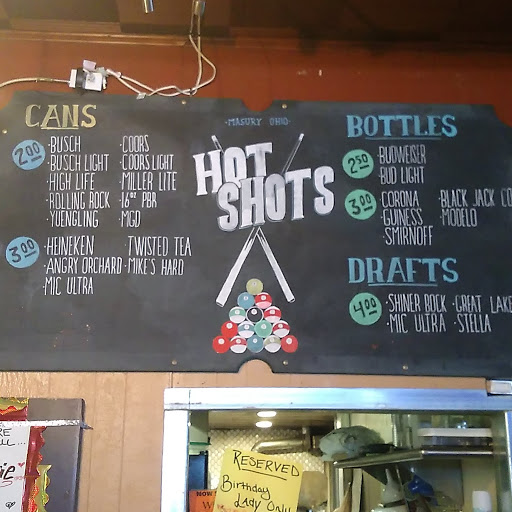 CANS
2.00
·BUSCH ·COORS
·BUSCH LIGHT ·COORS LIGHT
·HIGH LIFE ·MILLER LITE
·ROLLING ROCK ·16oz PBR
·YUENGLING ·MGD
3.00
·HEINEKEN ·TWISTED TEA
·ANGRY ORCHARD ·MIKE'S HARD
·MIC ULTRA
·MASURY OHIO·
HOT
SHOTS
BOTTLES
2.50
·BUDWEISER
·BUD LIGHT
3.00
·CORONA ·BLACK JACK CO
·GUINESS ·MODELO
·SMIRNOFF
DRAFTS
4.00
·SHINER BOCK ·GREAT LAKE
·MIC ULTRA ·STELLA
RESERVED
Birthday
Lady Only
NOW